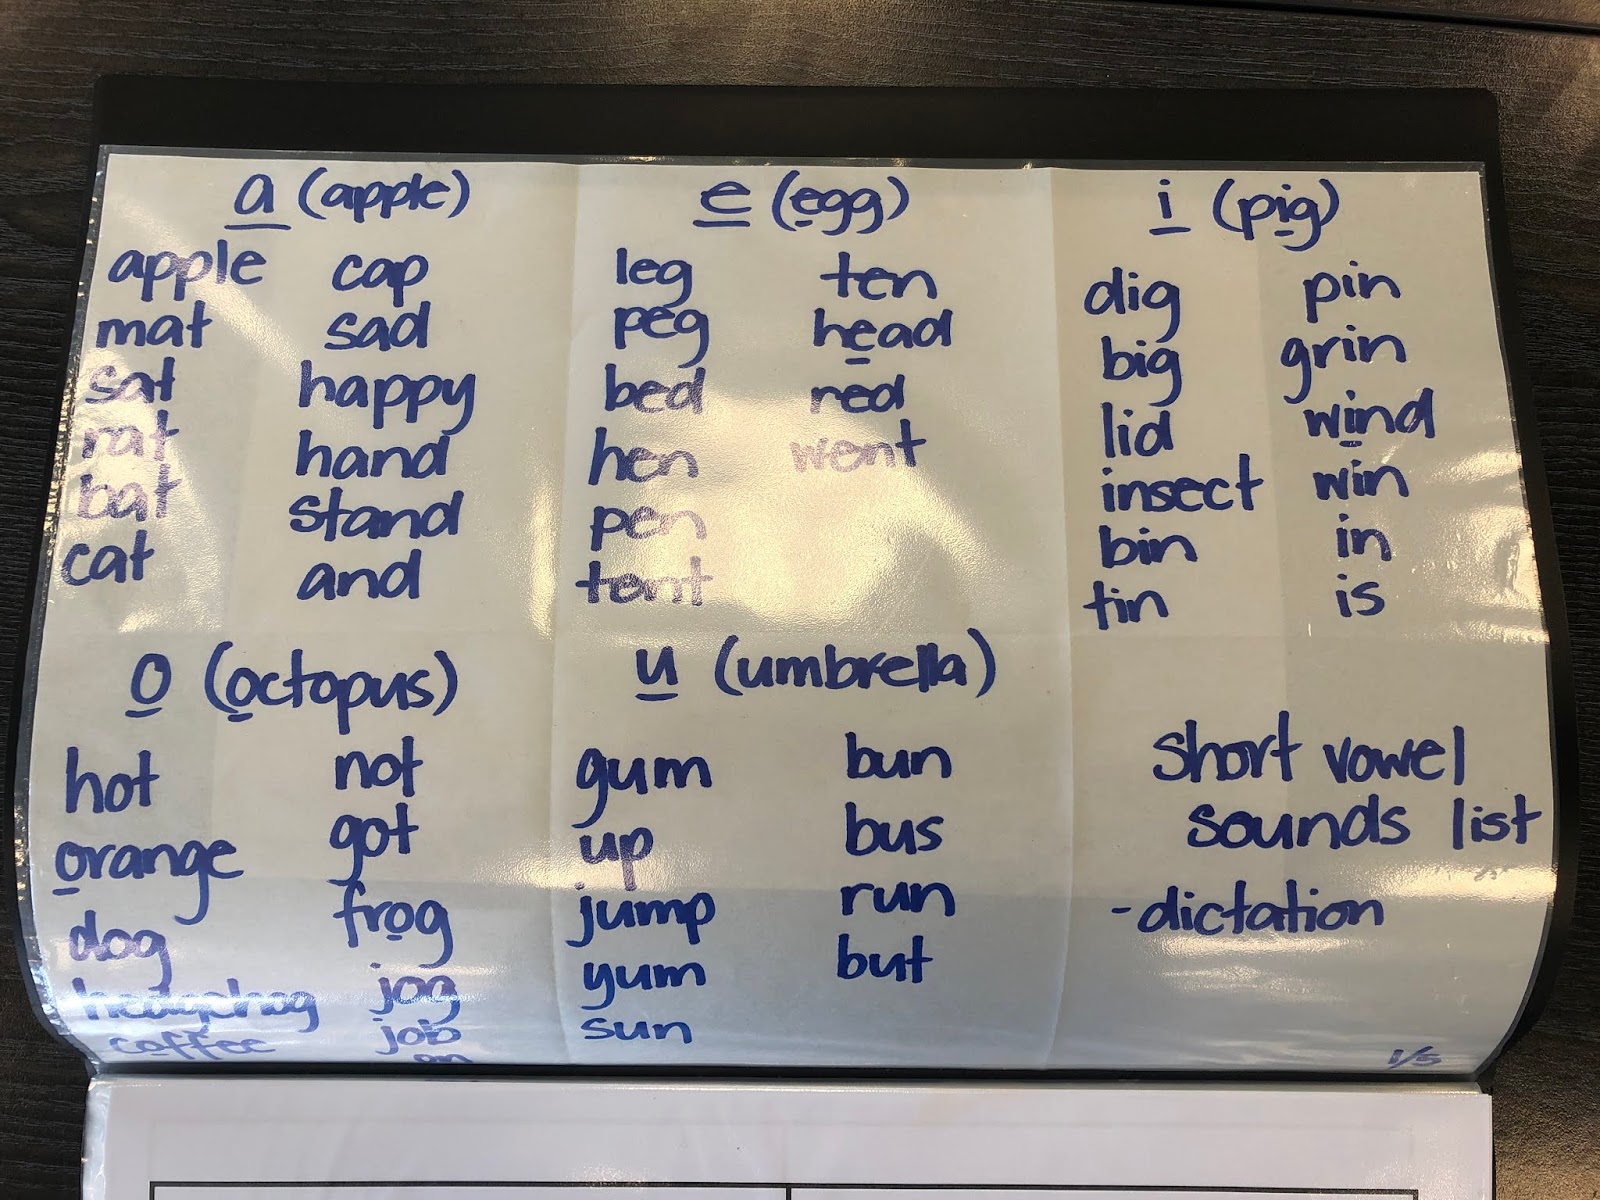 a (apple)
apple cap
mat sad
sat happy
rat hand
bat stand
cat and
e (egg)
leg ten
peg head
bed red
hen went
pen
tent
i (pig)
dig pin
big grin
lid wind
insect win
bin in
tin is
o (octopus)
hot not
orange got
dog frog
hedgehog jog
coffee job
on
u (umbrella)
gum bun
up bus
jump run
yum but
sun
short vowel
sounds list
-dictation
1/5